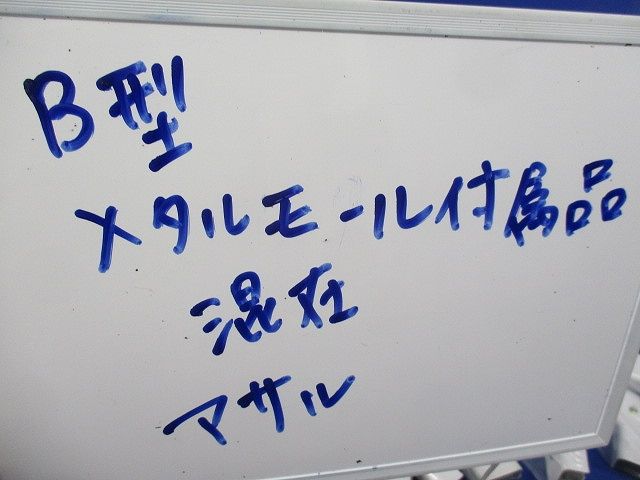 B型
メタルモール付属品
混在
マサル